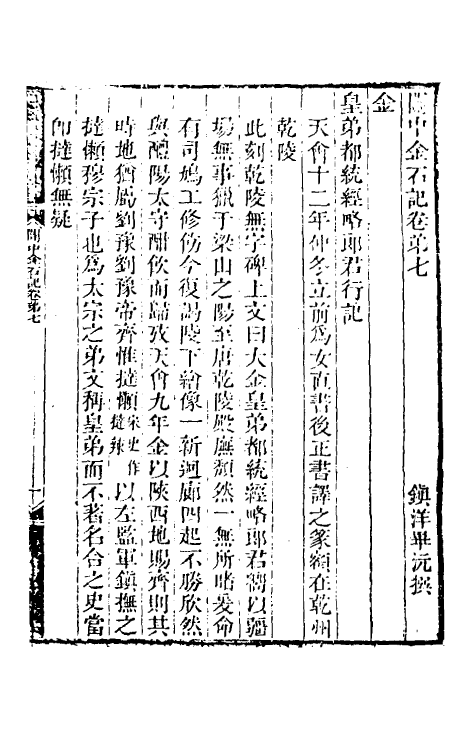 關中金石記卷弟七
鎮洋畢沅撰
金
皇弟都統經略郎君行記
天會十二年仲冬立前爲女直書後正書譯之篆額在乾州
乾陵
此刻乾陵無字碑上文曰大金皇弟都統經略郎君嚮以疆
場無事獵于梁山之陽至唐乾陵殿廡頹然一無所睹爰命
有司鳩工修飭今復謁陵下繪像一新迴廊四起不勝欣然
與醴陽太守酣飲而歸攷天會九年金以陝西地賜齊則其
時地猶屬劉豫劉豫帝齊惟撻懶宋史作撻辣以左監軍鎮撫之
撻懶穆宗子也爲太宗之弟文稱皇弟而不著名合之史當
卽撻懶無疑
關中金石記卷弟七
一